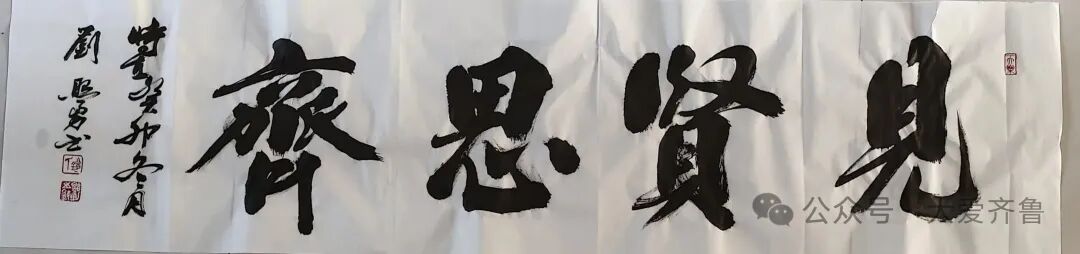 見賢思齊
時在癸卯冬月
劉熙勇书
公众号·大爱齐鲁